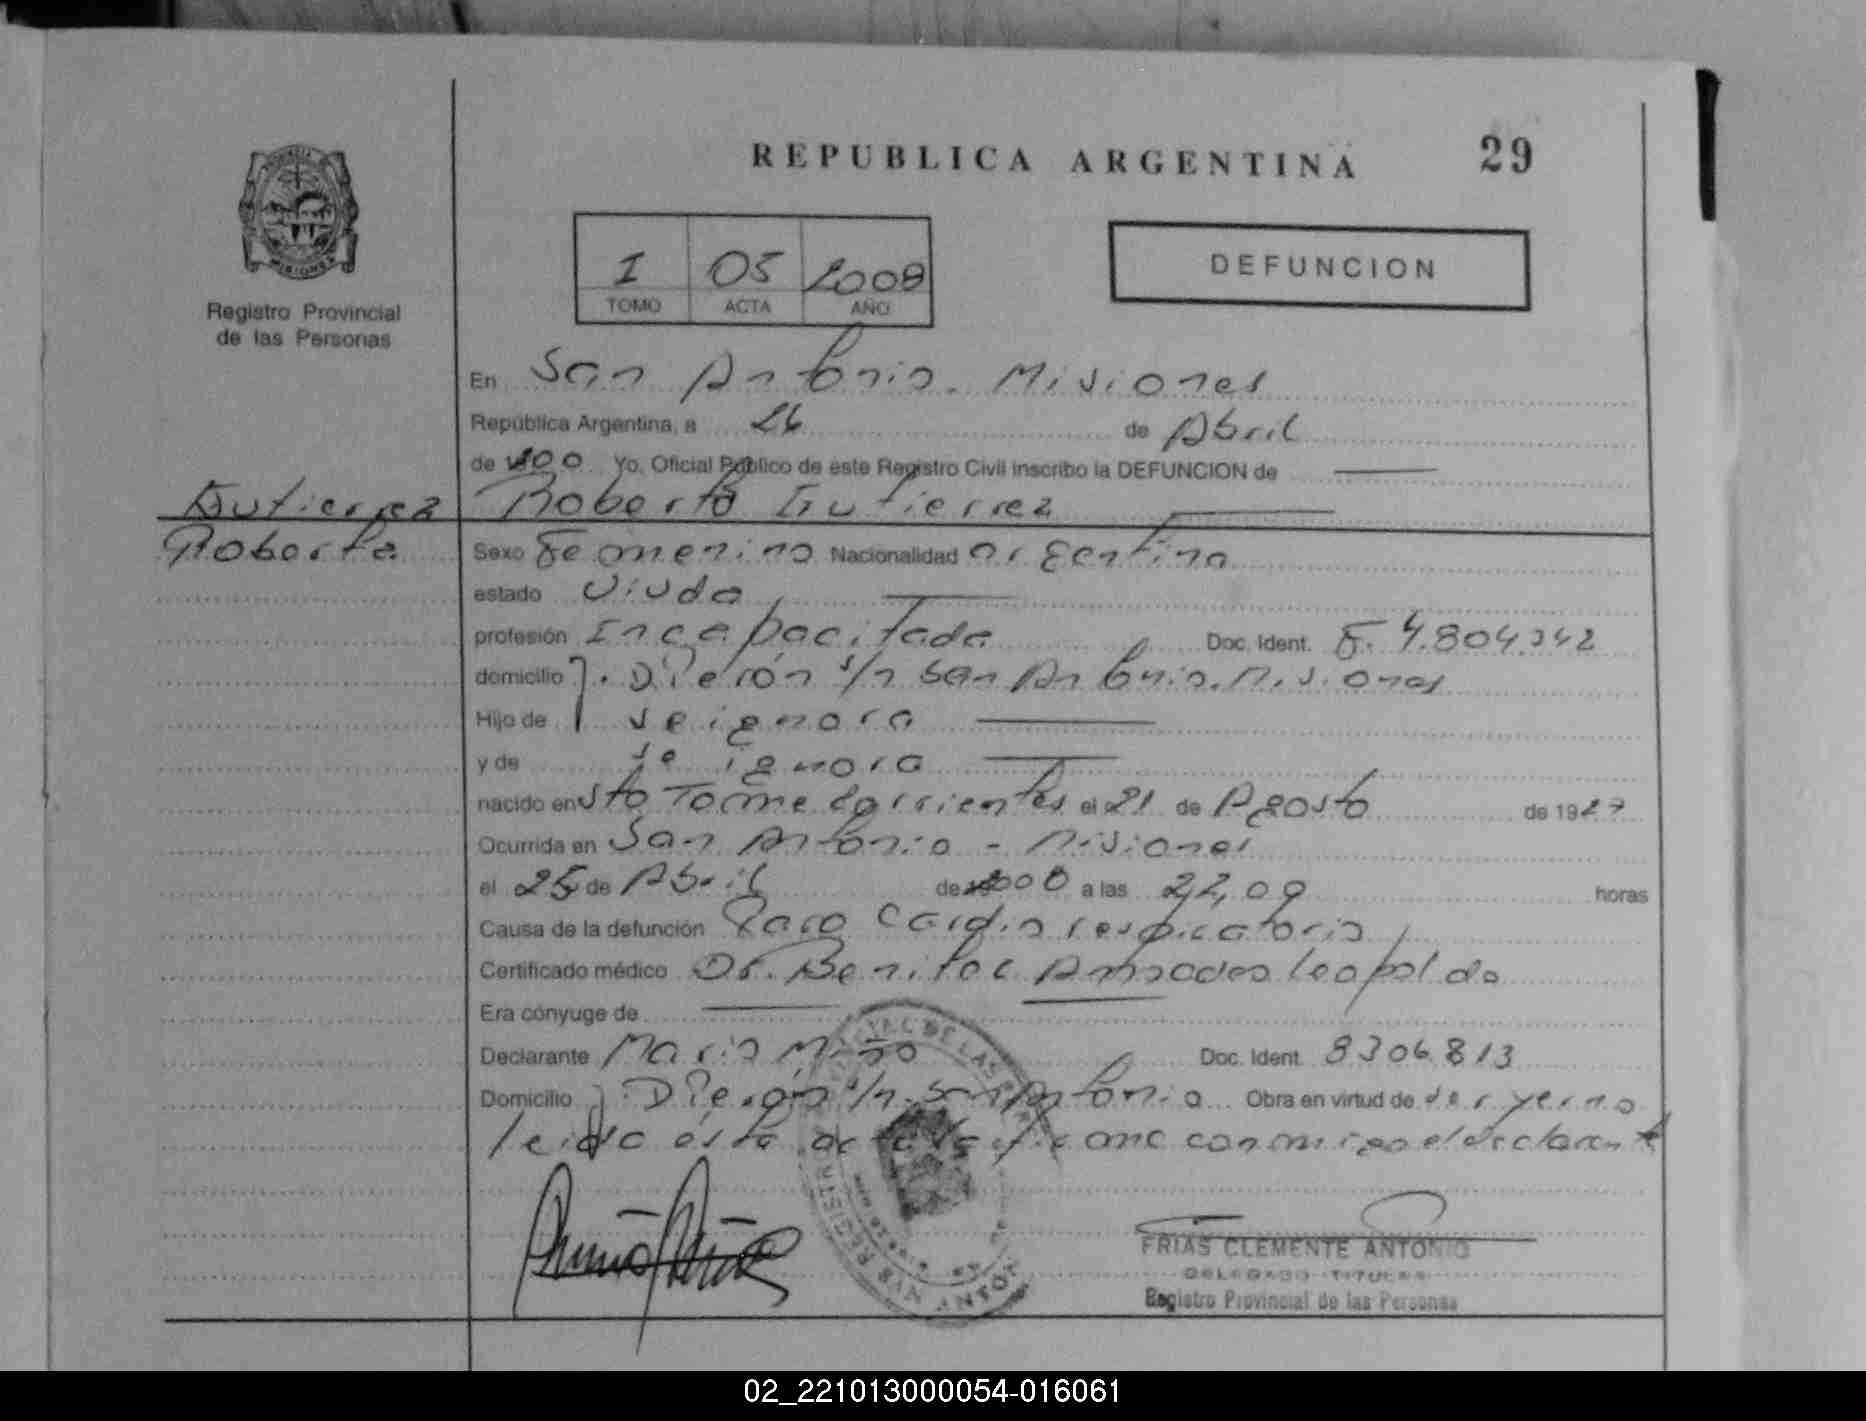 REPUBLICA ARGENTINA
29
Registro Provincial
de las Personas
I 05 2008
TOMO ACTA AÑO
DEFUNCION
En San Antonio. Misiones
República Argentina, a 26 de Abril
de Yo, Oficial Público de este Registro Civil inscribo la DEFUNCION de
Gutierrez
Roberta
Roberta Gutierrez
Sexo Femenino Nacionalidad argentina
estado Viuda
profesión Incapacitada Doc. Ident. F. 4.804.342
domicilio J. D. Perón s/n San Antonio. Misiones
Hijo de se ignora
y de se ignora
nacido en Sto Tome Corrientes el 21 de Agosto de 1927
Ocurrida en San Antonio - Misiones
el 25 de Abril de 2008 a las 22,09 horas
Causa de la defunción Paro Cardio respiratorio
Certificado médico Dr. Benitez Amadeo Leopoldo
Era cónyuge de
Declarante Mario Miño Doc. Ident. 8306813
Domicilio J. D Perón s/n. San Antonio Obra en virtud de ser yerno
leida ésta acta la firma conmigo el declarante
FRIAS CLEMENTE ANTONIO
DELEGADO TITULAR
Registro Provincial de las Personas
02_221013000054-016061